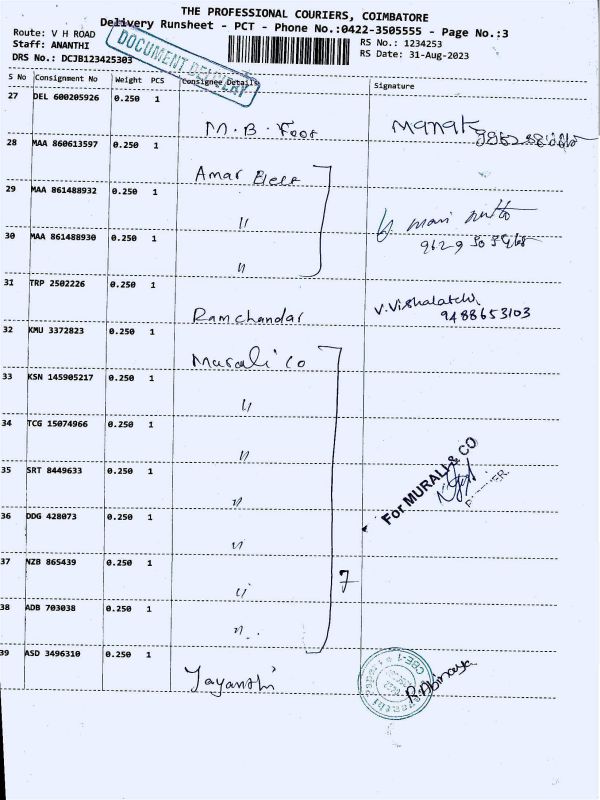 THE PROFESSIONAL COURIERS, COIMBATORE
Delivery Runsheet - PCT - Phone No.:0422-3505555 - Page No.:3
Route: V H ROAD
Staff: ANANTHI
DRS No.: DCJB123425303
RS No.: 1234253
RS Date: 31-Aug-2023
DOCUMENT DELIVERY
S No Consignment No Weight PCS Consignee Details Signature
27 DEL 600205926 0.250 1
M. B. Foor
28 MAA 860613597 0.250 1
Amar
29 MAA 861488932 0.250 1
"
30 MAA 861488930 0.250 1
"
31 TRP 2502226 0.250 1
Ramchandar V. Vishalatchi
9488653103
32 KMU 3372823 0.250 1
Murali Co
33 KSN 145905217 0.250 1
"
34 TCG 15074966 0.250 1
"
35 SRT 8449633 0.250 1
"
For MURALI & CO
36 DDG 428073 0.250 1
"
37 NZB 865439 0.250 1
" 7
38 ADB 703038 0.250 1
"
39 ASD 3496310 0.250 1
Jayanthi
CBE-1